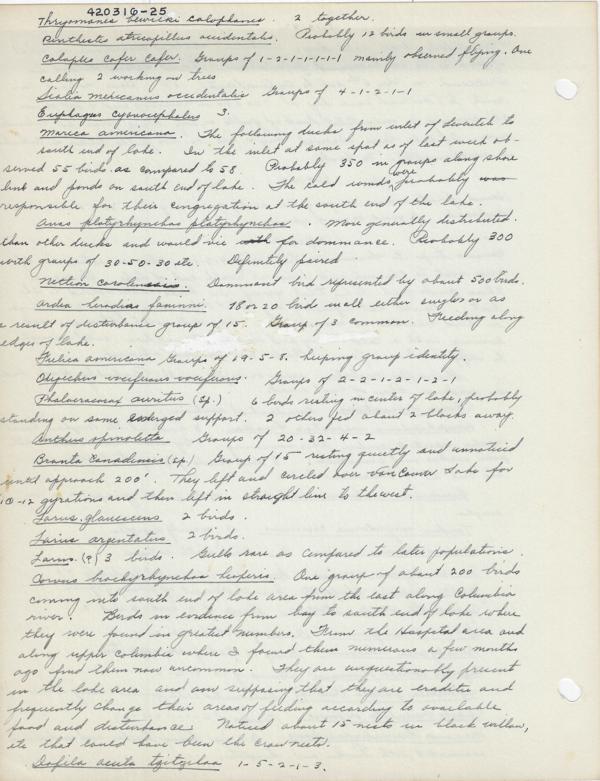 420316-25
Thryomanes bewicki calophonus. 2 together.
Penthestes atricapillus occidentalis. Probably 12 birds in small groups.
Colaptes cafer cafer. Groups of 1-2-1-1-1-1-1 mainly observed flying. One
calling 2 working on trees
Sialia mexicanus occidentalis Groups of 4-1-2-1-1
Euphagus cyanocephalus 3.
Mareca americana. The following ducks from inlet of seventh to
south end of lake. In the inlet at same spot as of last week ob-
served 55 birds as compared to 58. Probably 350 in groups along shore
line and ponds on south end of lake. The cold winds were probably was
responsible for their congregation at the south end of the lake.
Anas platyrhynchos platyrhynchos. More generally distributed.
than other ducks and would vie with for dominance. Probably 300
with groups of 30-50-30 etc. Definitely paired
Nettion carolinensis. Dominant bird represented by about 500 birds.
Ardea herodias fannini. 18 or 20 birds in all either singles or as
a result of disturbance group of 15. Group of 3 common. Feeding along
edges of lake.
Fulica americana Groups of 19-5-8. keeping group identity.
Oxyechus vociferous vociferous. Groups of 2-2-1-2-1-2-1
Phalacrocorax auritus (sp.) 6 birds resting in center of lake, probably
standing on some submerged support. 2 others fed about 2 blocks away.
Anthus spinoletta Groups of 20-32-4-2
Branta canadensis (sp.) Group of 15 resting quietly and unnoticed
until approach 200'. They left and circled over Vancouver Lake for
10-12 gyrations and then left in straight line to the west.
Larus glaucescens 2 birds.
Larius argentatus 2 birds.
Larus. (?) 3 birds. Gulls rare as compared to later populations.
Corvus brachyrhynchos hesperis. One group of about 200 birds
coming into south end of lake area from the east along Columbia
river. Birds in evidence from bay to south end of lake where
they were found in greatest numbers. From the Hospital area and
along upper Columbia where I found them numerous a few months
ago find them now uncommon. They are unquestionably present
in the lake area and am supposing that they are eradite and
frequently change their areas of feeding according to available
food and disturbance Noticed about 15 nests in black willow,
etc that could have been the crow nests.
Dafila acuta tzitzihoa 1-5-2-1-3.